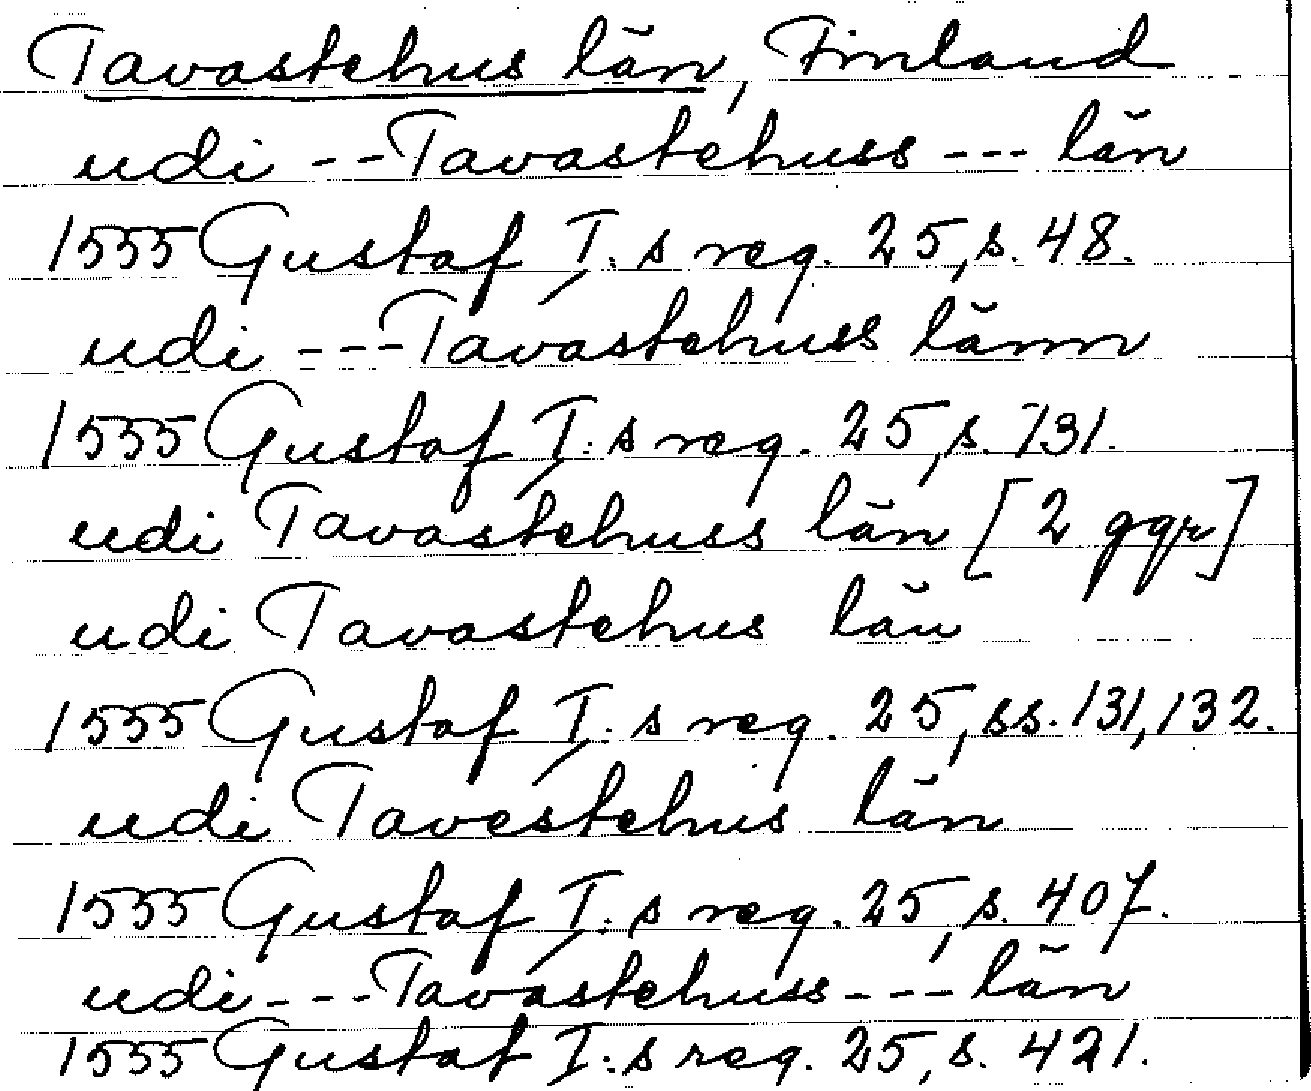 Tavastehus län, Finland
udi --Tavastehuss --- län
1555 Gustaf I:s reg. 25, s. 48.
udi ---Tavastehuss länn
1555 Gustaf I:s reg. 25, s. 131.
udi Tavastehuss län [2 ggr]
udi Tavastehus län
1555 Gustaf I:s reg. 25, ss. 131, 132.
udi Tavestehus län
1555 Gustaf I:s reg. 25, s. 407.
udi---Tavastehuss--- län
1555 Gustaf I:s reg. 25, s. 421.